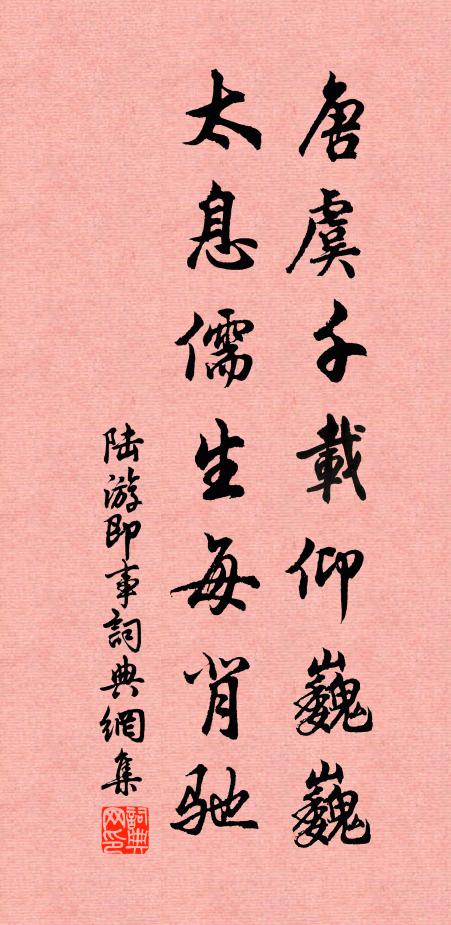 唐虞千載仰巍巍
太息儒生每背馳
陆游即事詞典網集
詞典网印